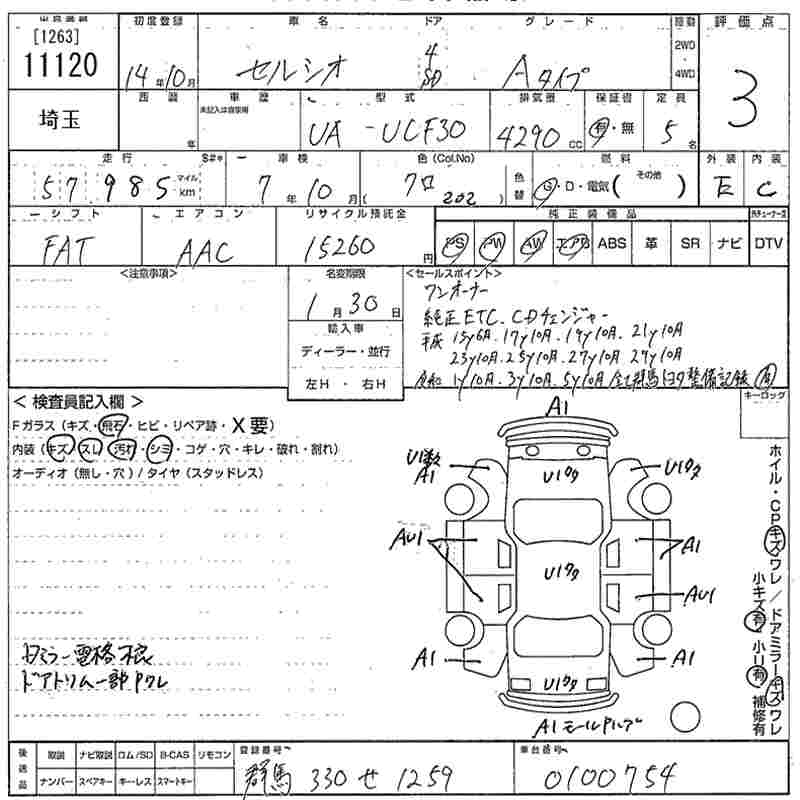 出品番号 初度登録 車名 ドア グレード 駆動 評価点
[1263]
11120 14年10月 セルシオ 4 SD Aタイプ 2WD 4WD 3
埼玉 西暦 年 車歴 未記入は自家用 型式 排気量 保証書 定員
UA-UCF30 4290cc 有・無 5名
走行 S#* 車検 色(Col.No) 燃料 外装 内装
57985 マイル km 7年10月 クロ (202) 色替 G・D・電気( その他 ) C
シフト エアコン リサイクル預託金 純正装備品
FAT AAC 15260円 PS PW AW エアB ABS 革 SR ナビ DTV
<注意事項> 名変期限 <セールスポイント>
1月30日 ワンオーナー
輸入車 純正ETC. CDチェンジャー
ディーラー・並行 平成 15y6月. 17y10月. 19y10月. 21y10月
23y10月. 25y10月. 27y10月. 29y10月
左H・右H 令和 1y10月. 3y10月. 5y10月 全て群馬トヨタ整備記録 有
< 検査員記入欄 > キーロック
Fガラス (キズ・飛石・ヒビ・リペア跡・X要)
内装 (キズ・スレ・汚れ・シミ・コゲ・穴・キレ・破れ・割れ)
オーディオ (無し・穴) / タイヤ (スタッドレス)
A1
U1数 A1 U1クタ U1クタ
AU1 A1
U1クタ
AU1
A1 A1
U1クタ
ホイル・CPキズワレ/ドアミラーキズワレ
小キズ有 小U有 補修有
ドアトリム一部ワレ
後送品 取説 ナビ取説 ロム/SD B-CAS リモコン 登録番号 車台番号
ナンバー スペアキー キーレス スマートキー 群馬 330 せ 1259 0100754